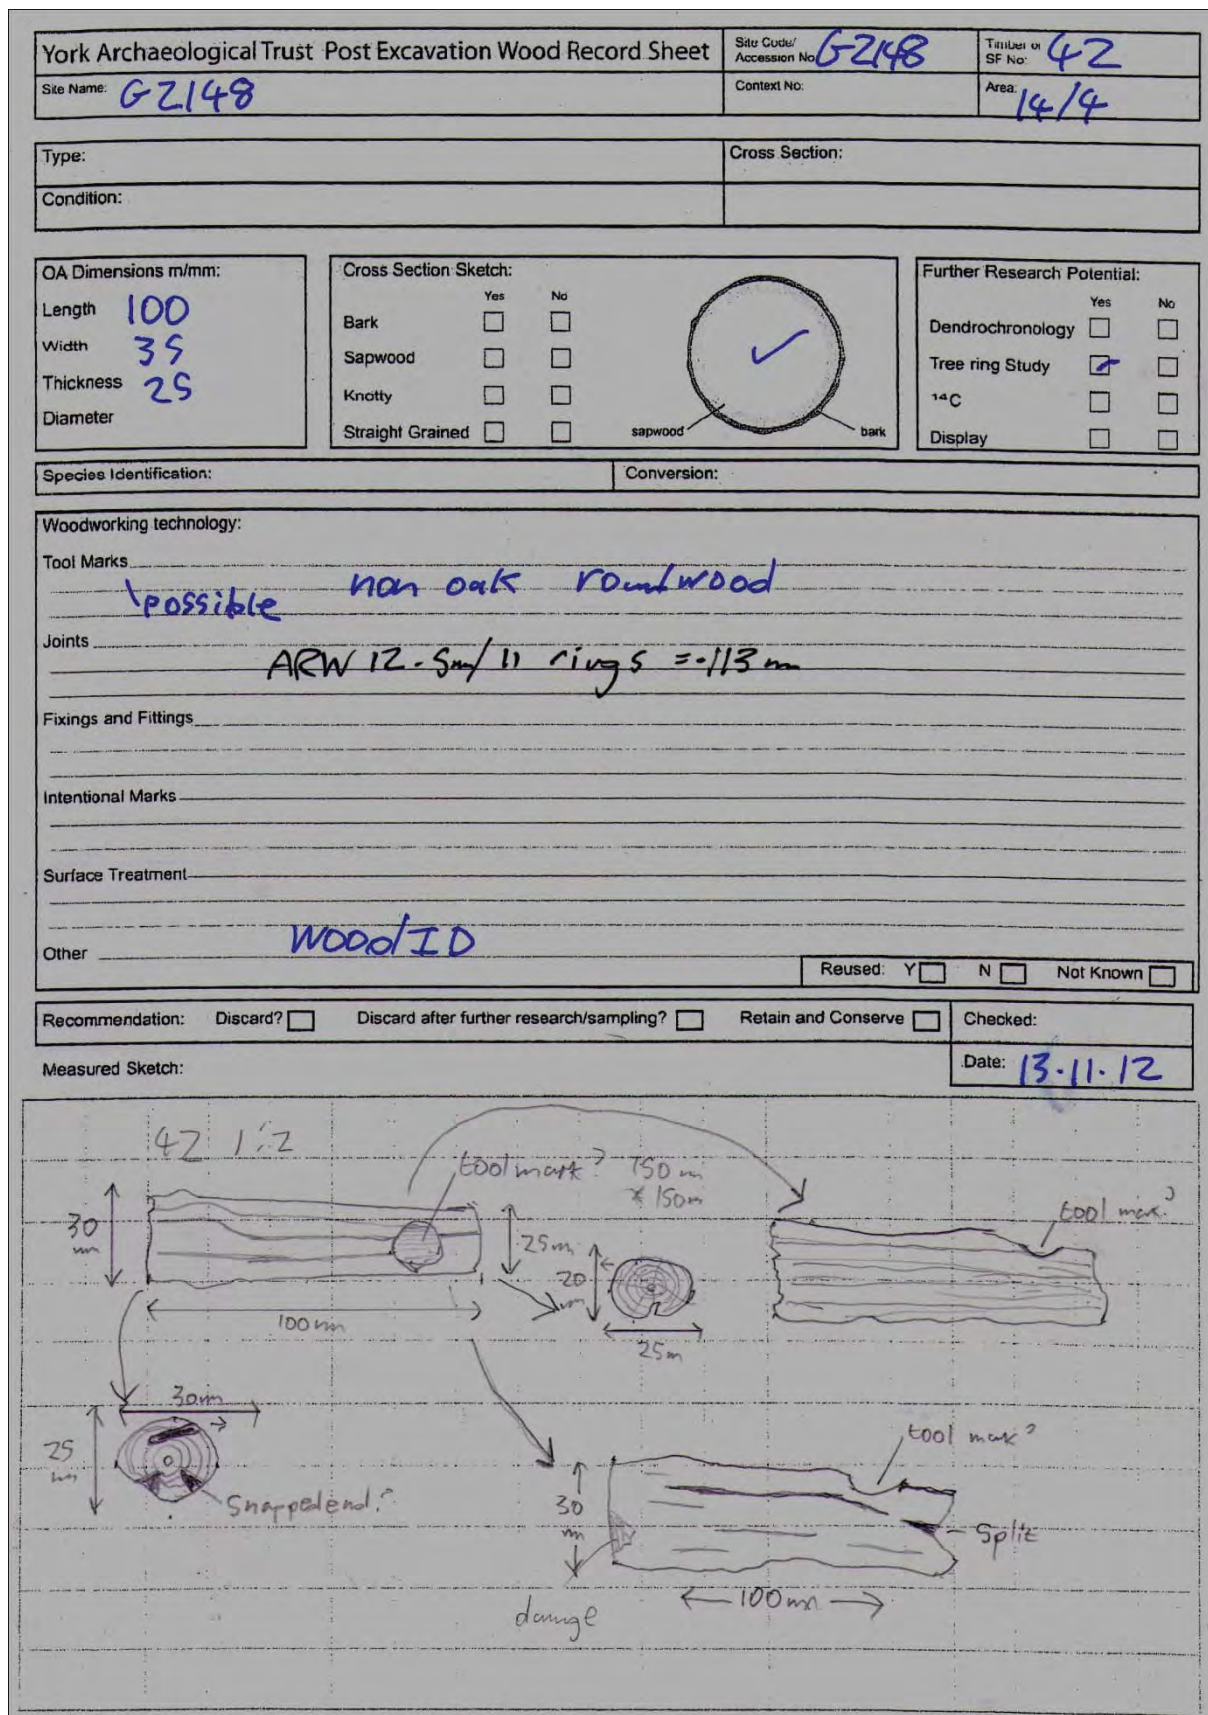 York Archaeological Trust Post Excavation Wood Record Sheet
Site Code/
Accession No G2148
Timber or
SF No: 42
Site Name: G2148
Context No:
Area: 14/4
Type:
Cross Section:
Condition:
OA Dimensions m/mm:
Length 100
Width 35
Thickness 25
Diameter
Cross Section Sketch:
Yes No
Bark
Sapwood
Knotty
Straight Grained
sapwood
bark
Further Research Potential:
Yes No
Dendrochronology
Tree ring Study
14C
Display
Species Identification:
Conversion:
Woodworking technology:
Tool Marks
possible non oak roundwood
Joints
ARW 12.5m/11 rings = .113 m
Fixings and Fittings
Intentional Marks
Surface Treatment
Other Wood ID
Reused: Y N Not Known
Recommendation: Discard? Discard after further research/sampling? Retain and Conserve
Checked:
Measured Sketch:
Date: 13.11.12
42 1:2
tool mark?
150m
* 150m
tool mark?
30
mm
25m
20
mm
100mm
25m
30mm
25
mm
Snapped end?
tool mark?
30
mm
Split
100mm
damage